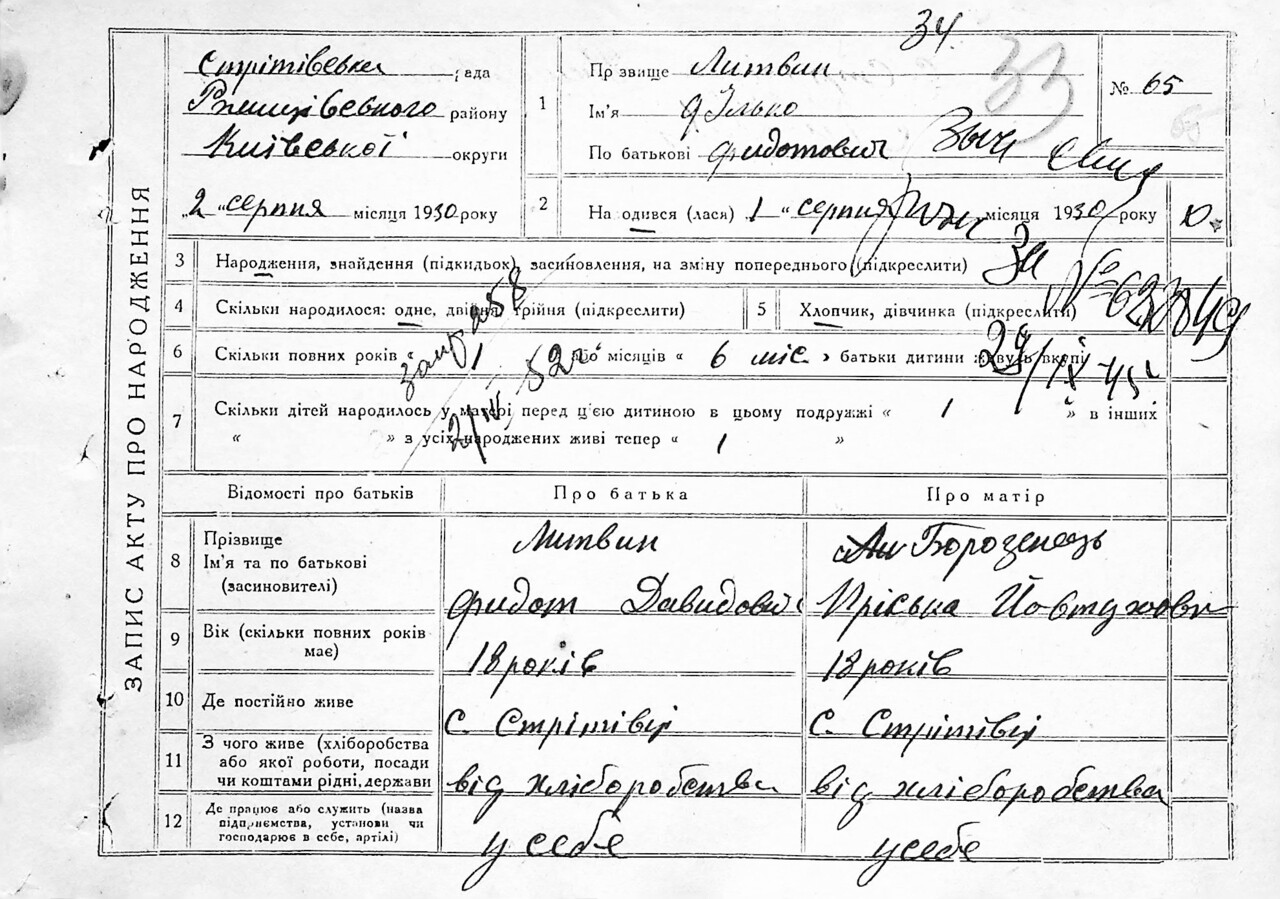 34.
33
ЗАПИС АКТУ ПРО НАРОДЖЕННЯ
Стрітівська рада
Ржищівського району
Київської округи
„2 " серпня місяця 1930 року
1
Прізвище Литвин
Ім'я Ілько
По батькові Федотович
№ 65
2
На одився (лася) 1 " серпня місяця 1930 року
10
3 Народження, знайдення (підкидьок), засиновлення, на зміну попереднього (підкреслити)
4 Скільки народилося: одне, двійня, трійня (підкреслити)
5 Хлопчик, дівчинка (підкреслити)
6 Скільки повних років „ 1 місяців „ 6 міс. " батьки дитини живуть вкупі
29/IX 45
7 Скільки дітей народилось у матері перед цією дитиною в цьому подружжі „ 1 " в інших
„ " з усіх народжених живі тепер „ 1 "
Відомості про батьків Про батька Про матір
8 Прізвище
Ім'я та по батькові
(засиновителі)
Литвин
Федот Давидович
Борозенець
Пріська
9 Вік (скільки повних років має)
18 років 18 років
10 Де постійно живе
с. Стрітівці с. Стрітівці
11 З чого живе (хліборобства
або якої роботи, посади
чи коштами рідні, держави
від хліборобства від хліборобства
12 Де працює або служить (назва
підприємства, установи чи
господарює в себе, артілі)
у себе у себе